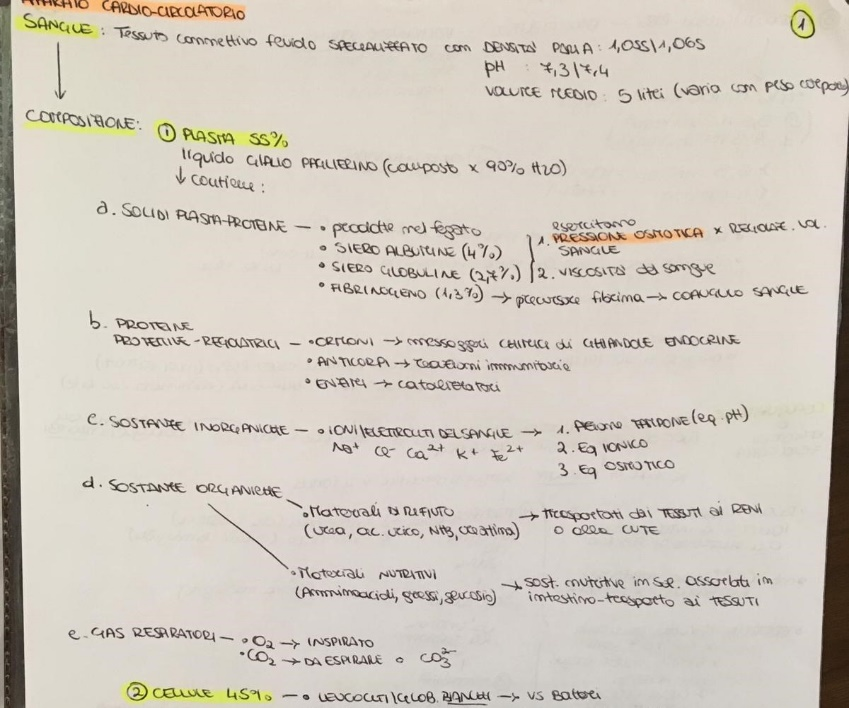 APPARATO CARDIO-CIRCOLATORIO
1
SANGUE: Tessuto connettivo fluido SPECIALIZZATO con DENSITÀ PARI A: 1,055/1,065
pH : 7,3/7,4
VOLUME MEDIO: 5 litri (varia con peso corporeo)
COMPOSIZIONE: ① PLASMA 55%
liquido GIALLO PAGLIERINO (composto x 90% H2O)
↓ contiene:
a. SOLIDI PLASMA-PROTEINE — • prodotte nel fegato
• SIERO ALBUMINE (4%)
• SIERO GLOBULINE (2,7%)
• FIBRINOGENO (1,3%) → precursore fibrina → COAGULO SANGUE
esercitano
1. PRESSIONE OSMOTICA x REGOLAZ. VOL.
SANGUE
2. VISCOSITÀ del sangue
b. PROTEINE
PROTEINE-REGOLATRICI — • ORMONI → messaggeri CHIMICI di GHIANDOLE ENDOCRINE
• ANTICORPI → reazioni immunitarie
• ENZIMI → catalizzatori
c. SOSTANZE INORGANICHE — • IONI/ELETTROLITI DEL SANGUE → 1. Azione TAMPONE (eq. pH)
Na+ Cl- Ca2+ K+ Fe2+
2. Eq IONICO
3. Eq OSMOTICO
d. SOSTANZE ORGANICHE
• Materiali DI RIFIUTO → trasportati dai TESSUTI ai RENI
(urea, ac. urico, NH3, creatina) o alla CUTE
• Materiali NUTRITIVI → sost. nutritive in sol. assorbiti in
(Amminoacidi, grassi, glucosio) intestino-trasporto ai TESSUTI
e. GAS RESPIRATORI — • O2 → INSPIRATO
• CO2 → DA ESPIRARE o CO3 2-
② CELLULE 45% — • LEUCOCITI/GLOB. BIANCHI → VS Batteri